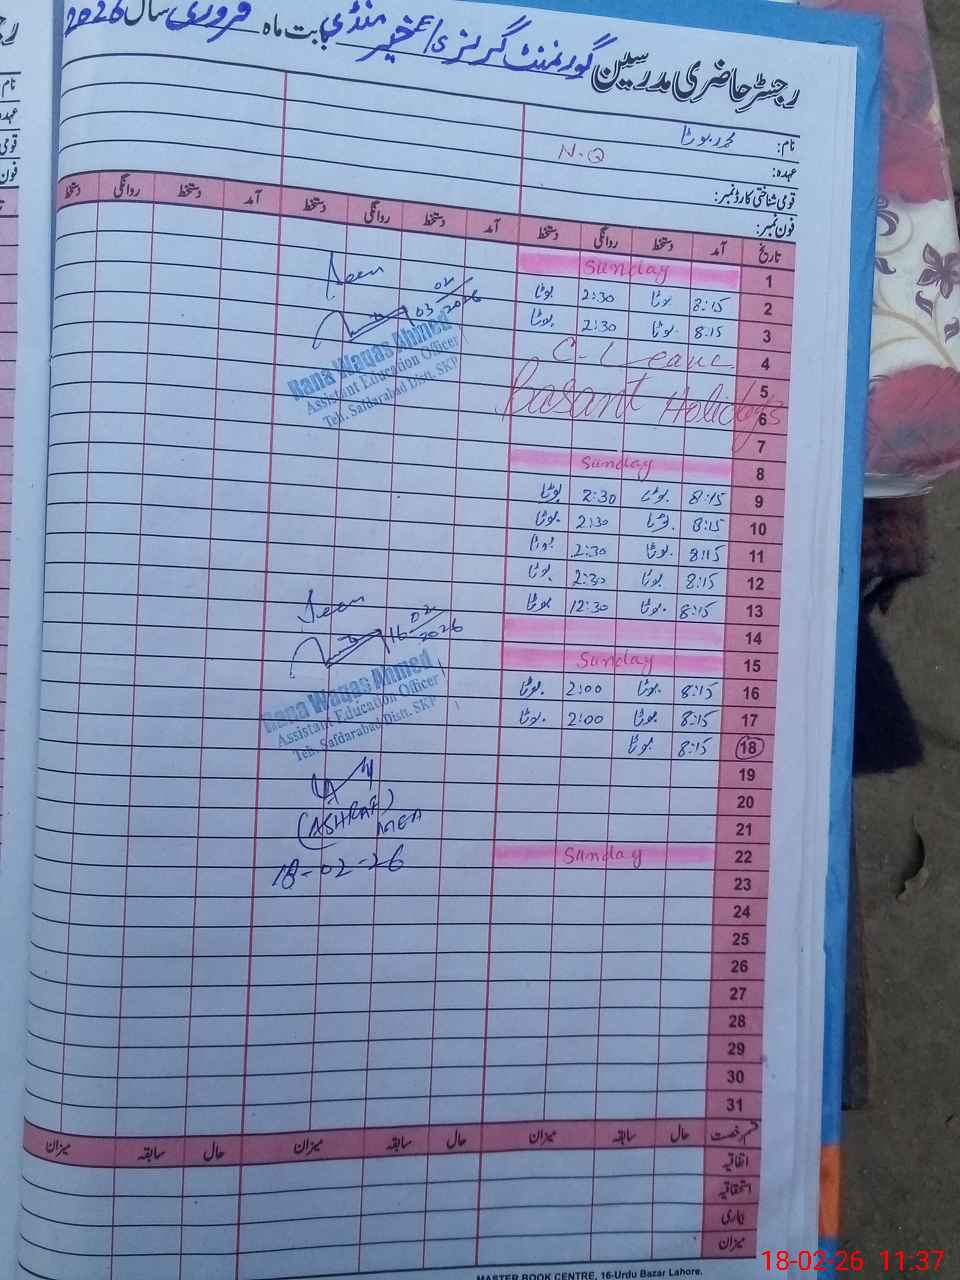 رجسٹر حاضری مدرسین گورنمنٹ گرلز بابت ماہ فروری سال 2026
نام: محمد بوٹا
عہدہ: N.Q
قومی شناختی کارڈ نمبر:
فون نمبر:
تاریخ آمد دستخط روانگی دستخط آمد دستخط روانگی دستخط آمد دستخط روانگی دستخط
1 Sunday
2 8:15 بوٹا 2:30 بوٹا
3 8:15 بوٹا 2:30 بوٹا
4 C-Leave
5
6 Basant Holidays
7
8 Sunday
9 8:15 بوٹا 2:30 بوٹا
10 8:15 بوٹا 2:30 بوٹا
11 8:15 بوٹا 2:30 بوٹا
12 8:15 بوٹا 2:30 بوٹا
13 8:15 بوٹا 12:30 بوٹا
14
15 Sunday
16 8:15 بوٹا 2:00 بوٹا
17 8:15 بوٹا 2:00 بوٹا
18 8:15 بوٹا
19
20
21
22 Sunday
23
24
25
26
27
28
29
30
31
Seen
03 02 2026
Rana Waqas Ahmed
Assistant Education Officer
Teh. Safdarabad Distt. SKP
Seen
16 02 2026
Rana Waqas Ahmed
Assistant Education Officer
Teh. Safdarabad Distt. SKP
(ASHRAF)
MEA
18-02-26
قسم رخصت حال سابقہ میزان حال سابقہ میزان حال سابقہ میزان
اتفاقیہ
استحقاقیہ
بیماری
میزان
MASTER BOOK CENTRE, 16-Urdu Bazar Lahore.
نام
عہدہ
قومی
فون
18-02-26 11:37